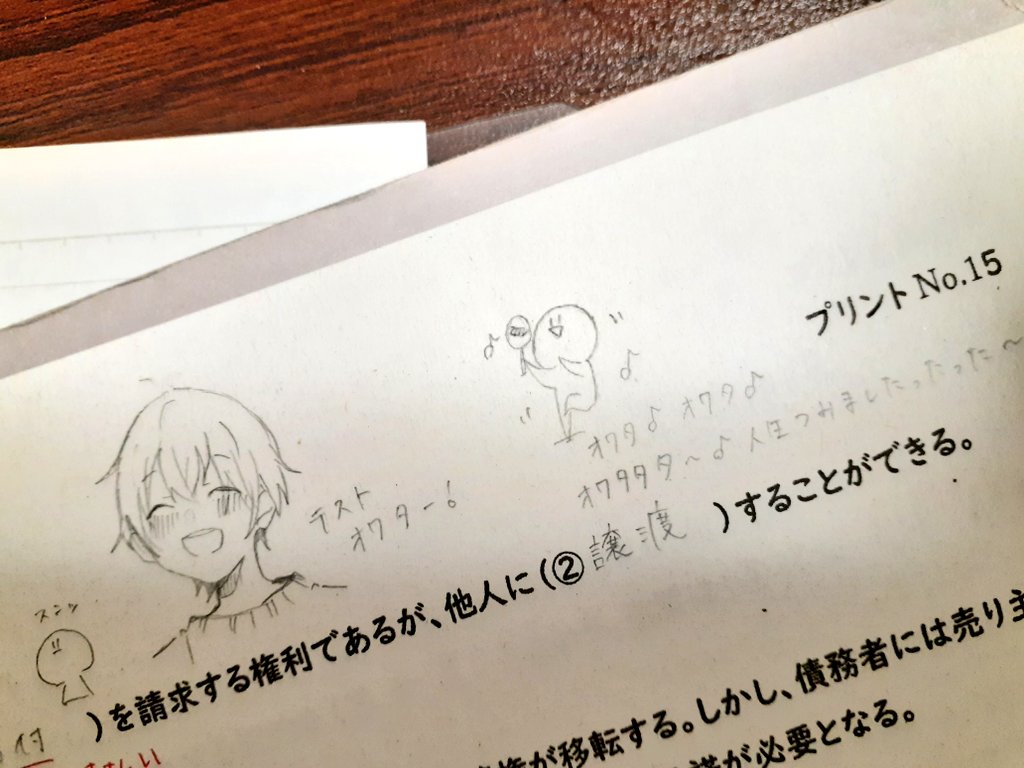 プリント No.15
オワタ♪ オワタ♪
オワタタタ～♪ 人生つみましたったったー～
テスト
オワター！
スンッ
)を請求する権利であるが、他人に(②譲渡)することができる。
付
が移転する。しかし、債務者には売り主
諾が必要となる。